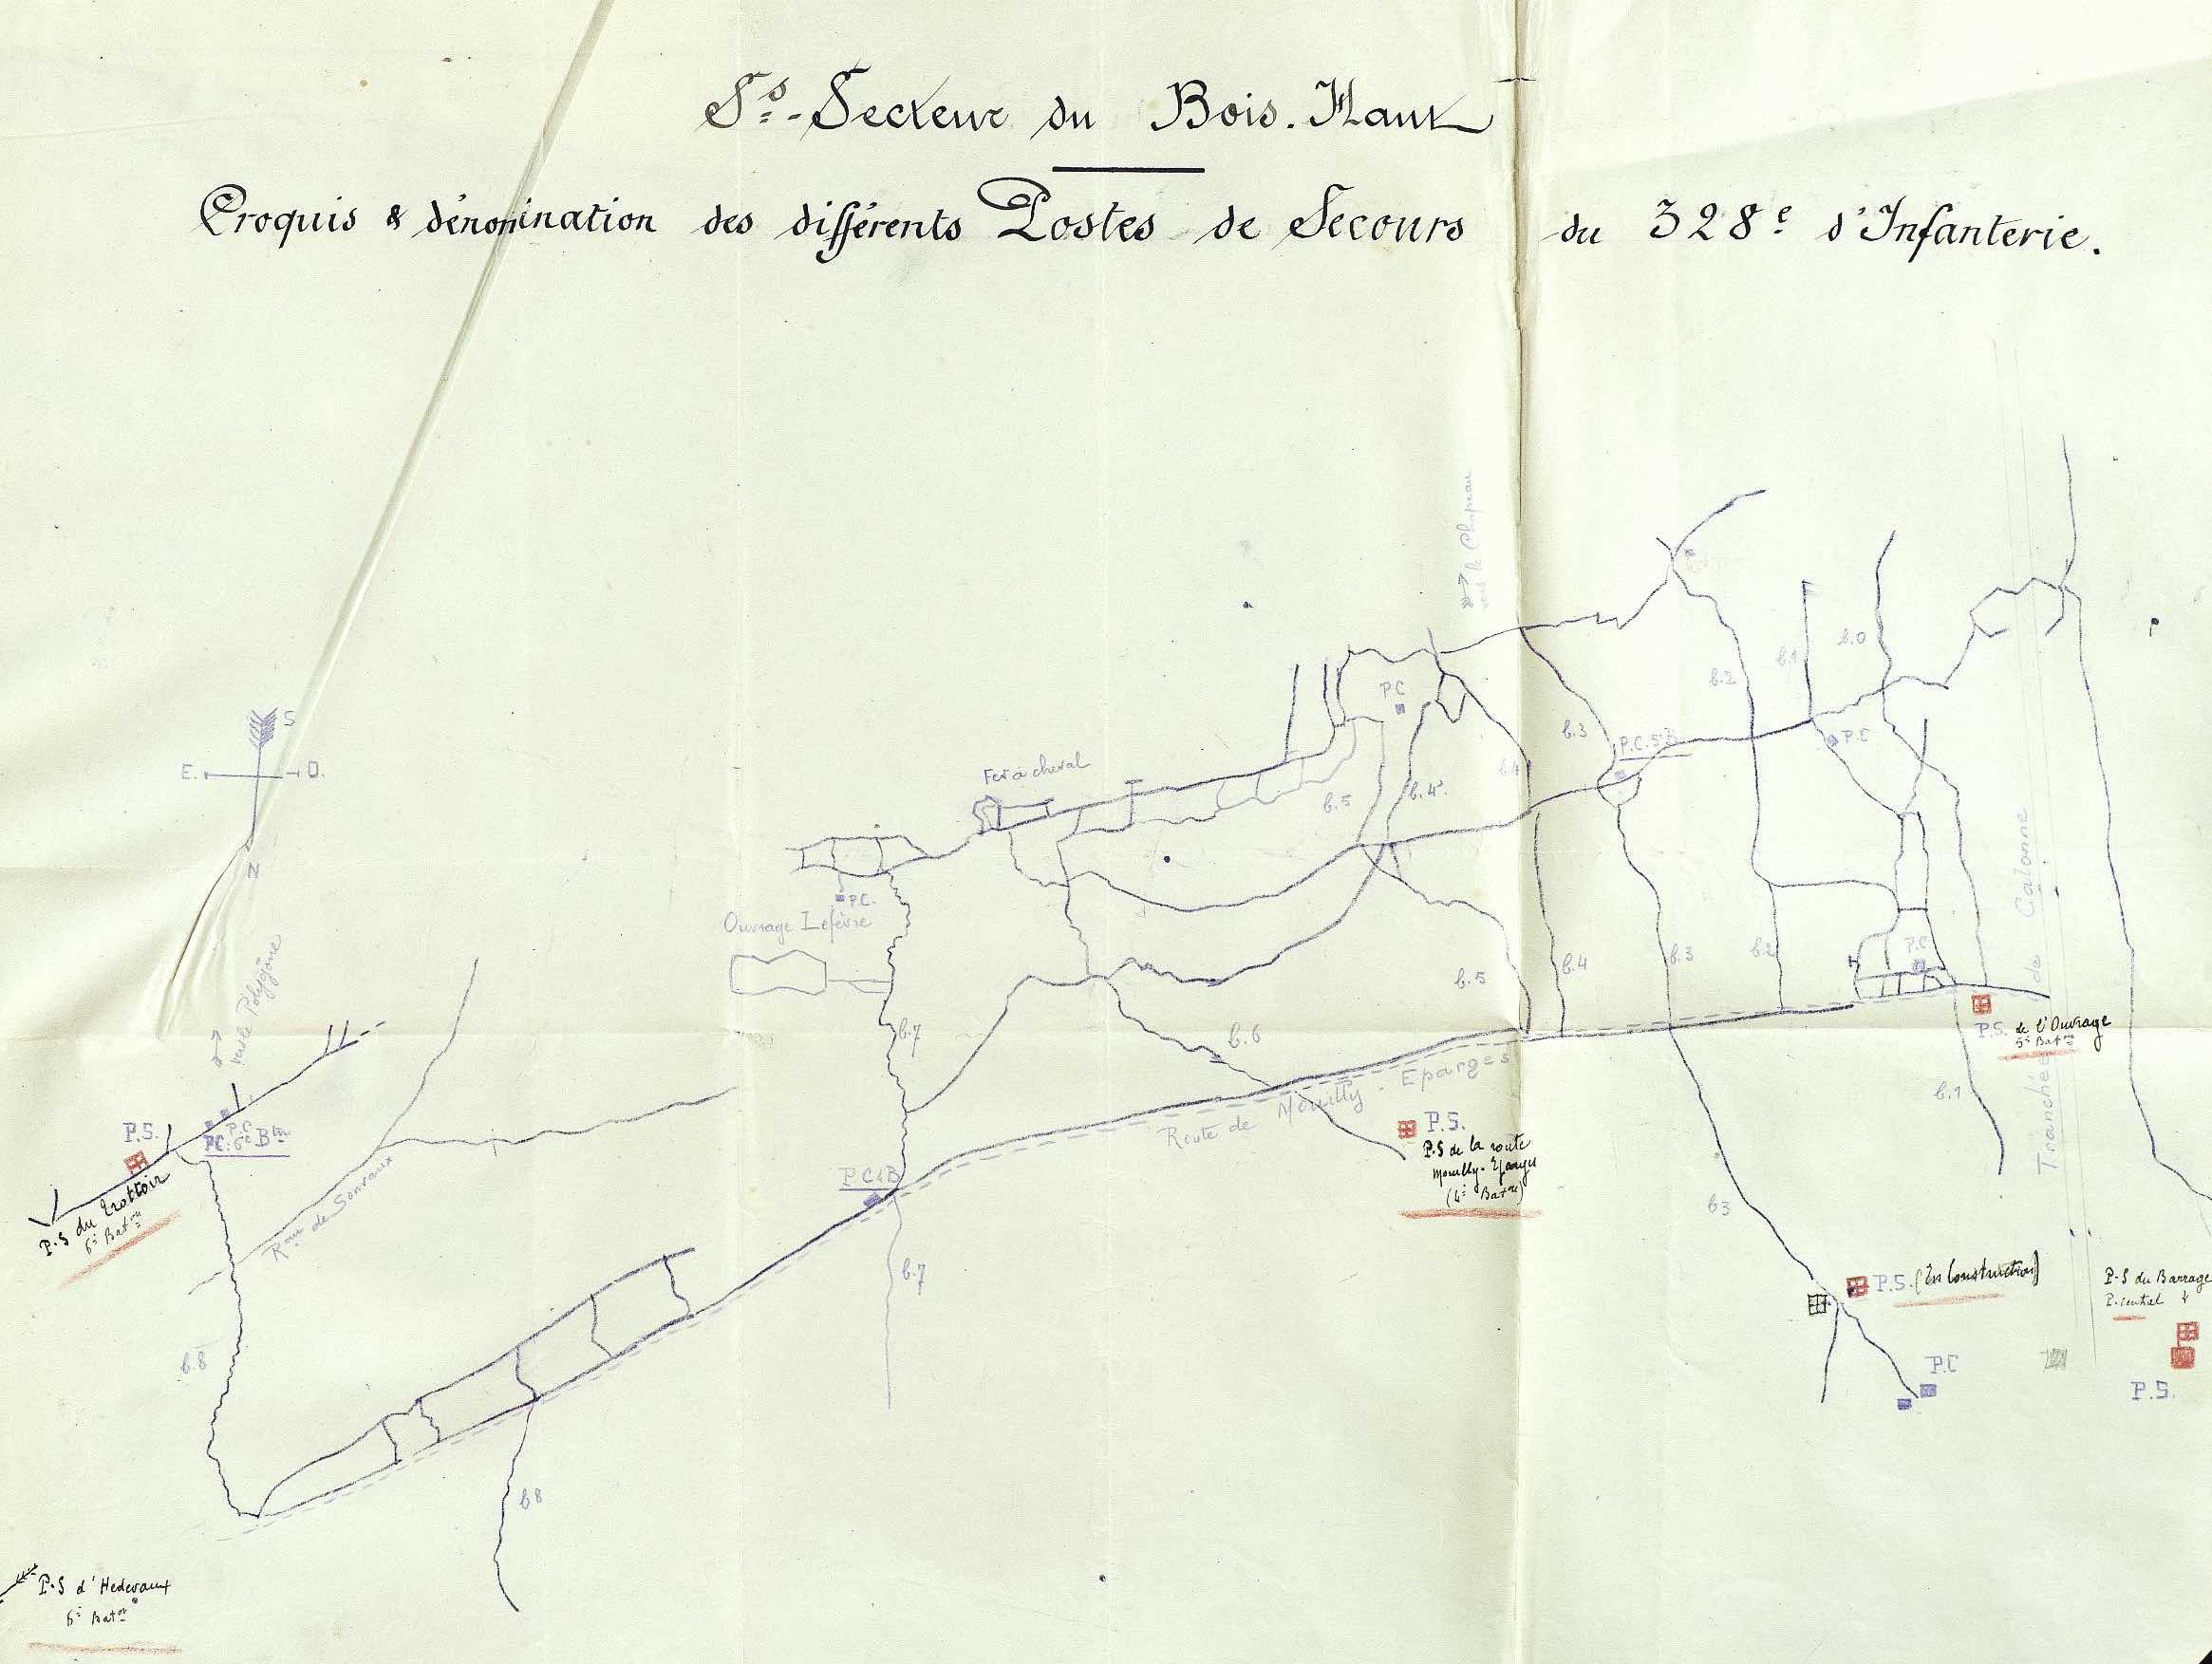 Ss-Secteur du Bois-Haut
Croquis & dénomination des différents Postes de Secours du 328e d'Infanterie.
vers le Chapeau
S
E. O.
N
vers le Polygône
b.0
b.1
b.2
b.3
P.C.
P.C. 5e B
P.C
Fer à cheval
b.4
b.4'.
b.5
P.C.
Ouvrage Lefèvre
Tranchée de Calonne
P.C
b.5
b.4
b.3
b.2
b.7
b.6
P.S. de l'Ouvrage
5e Baton
Route de Mouilly - Eparges
b.1
P.S.
P.S de la route
Mouilly-Eparges
(4e Baton)
P.S.
P.C.
P.C. 6e Bon
P.S du Trottoir
6e Baton
Rau de Sonvaux
P C 4 B
b3
b.7
P.S. (En Construction)
P.S du Barrage
P. central
P.C
P.S.
b.8
b8
P.S d'Hedevaux
6e Baton